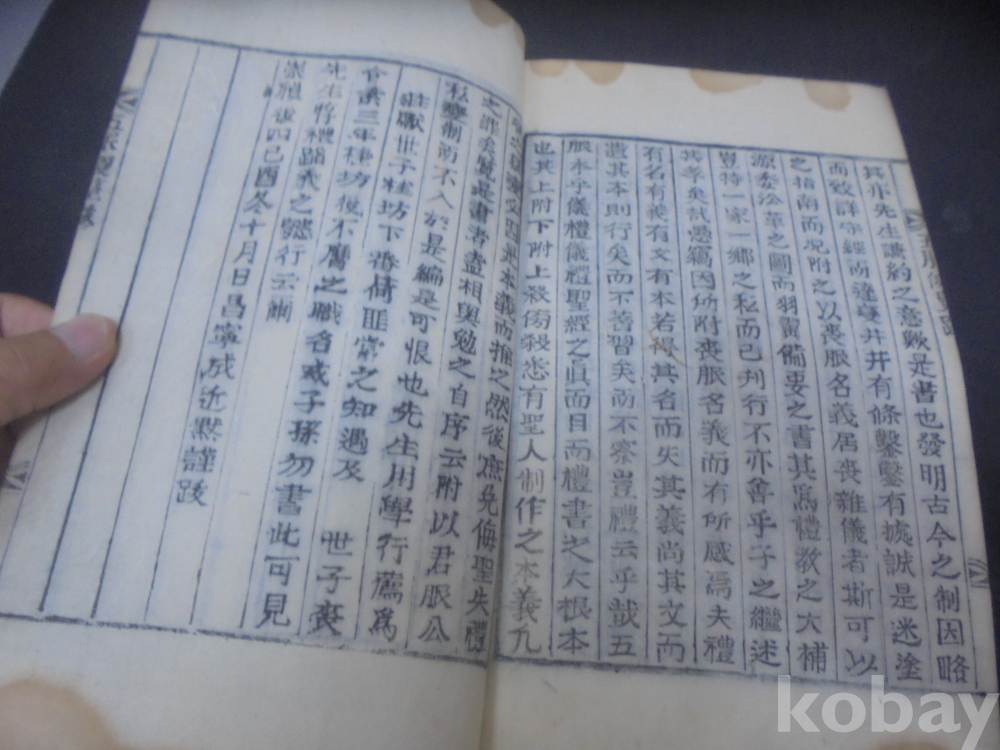 其亦先生謙約之意歟是書也發明古今之制因略
而致詳守經而達變井井有條鑿鑿有據誠是迷塗
之指南而况附之以喪服名義居喪雜儀者斯可以
源委沿革之圖而羽翼備要之書其爲禮敎之大補
豈特一家一鄕之私而已刋行不亦善乎子之繼述
其孝矣試愚編因所附喪服名義而有所感焉夫禮
有名有義有文有本若得其名而失其義尚其文而
遺其本則行矣而不著習矣而不察豈禮云乎哉五
服本乎儀禮儀禮聖經之眞而目而禮書之大根本
也其上附下附上殺傍殺悉有聖人制作之本義九
本義而推之然後庶免侮聖失禮
之罪矣覽是書者盍相與勉之自序云附以君服公
私變制而不入於是編是可恨也先生用學行薦爲
莊獻世子桂坊下番倚匪常之知遇及 世子喪
含素三年桂坊後不膺之職名戒子孫勿書此可見
先生將禮蹈義之懿行云爾
崇禎後四己酉冬十月日昌寧成近默謹跋
kobay